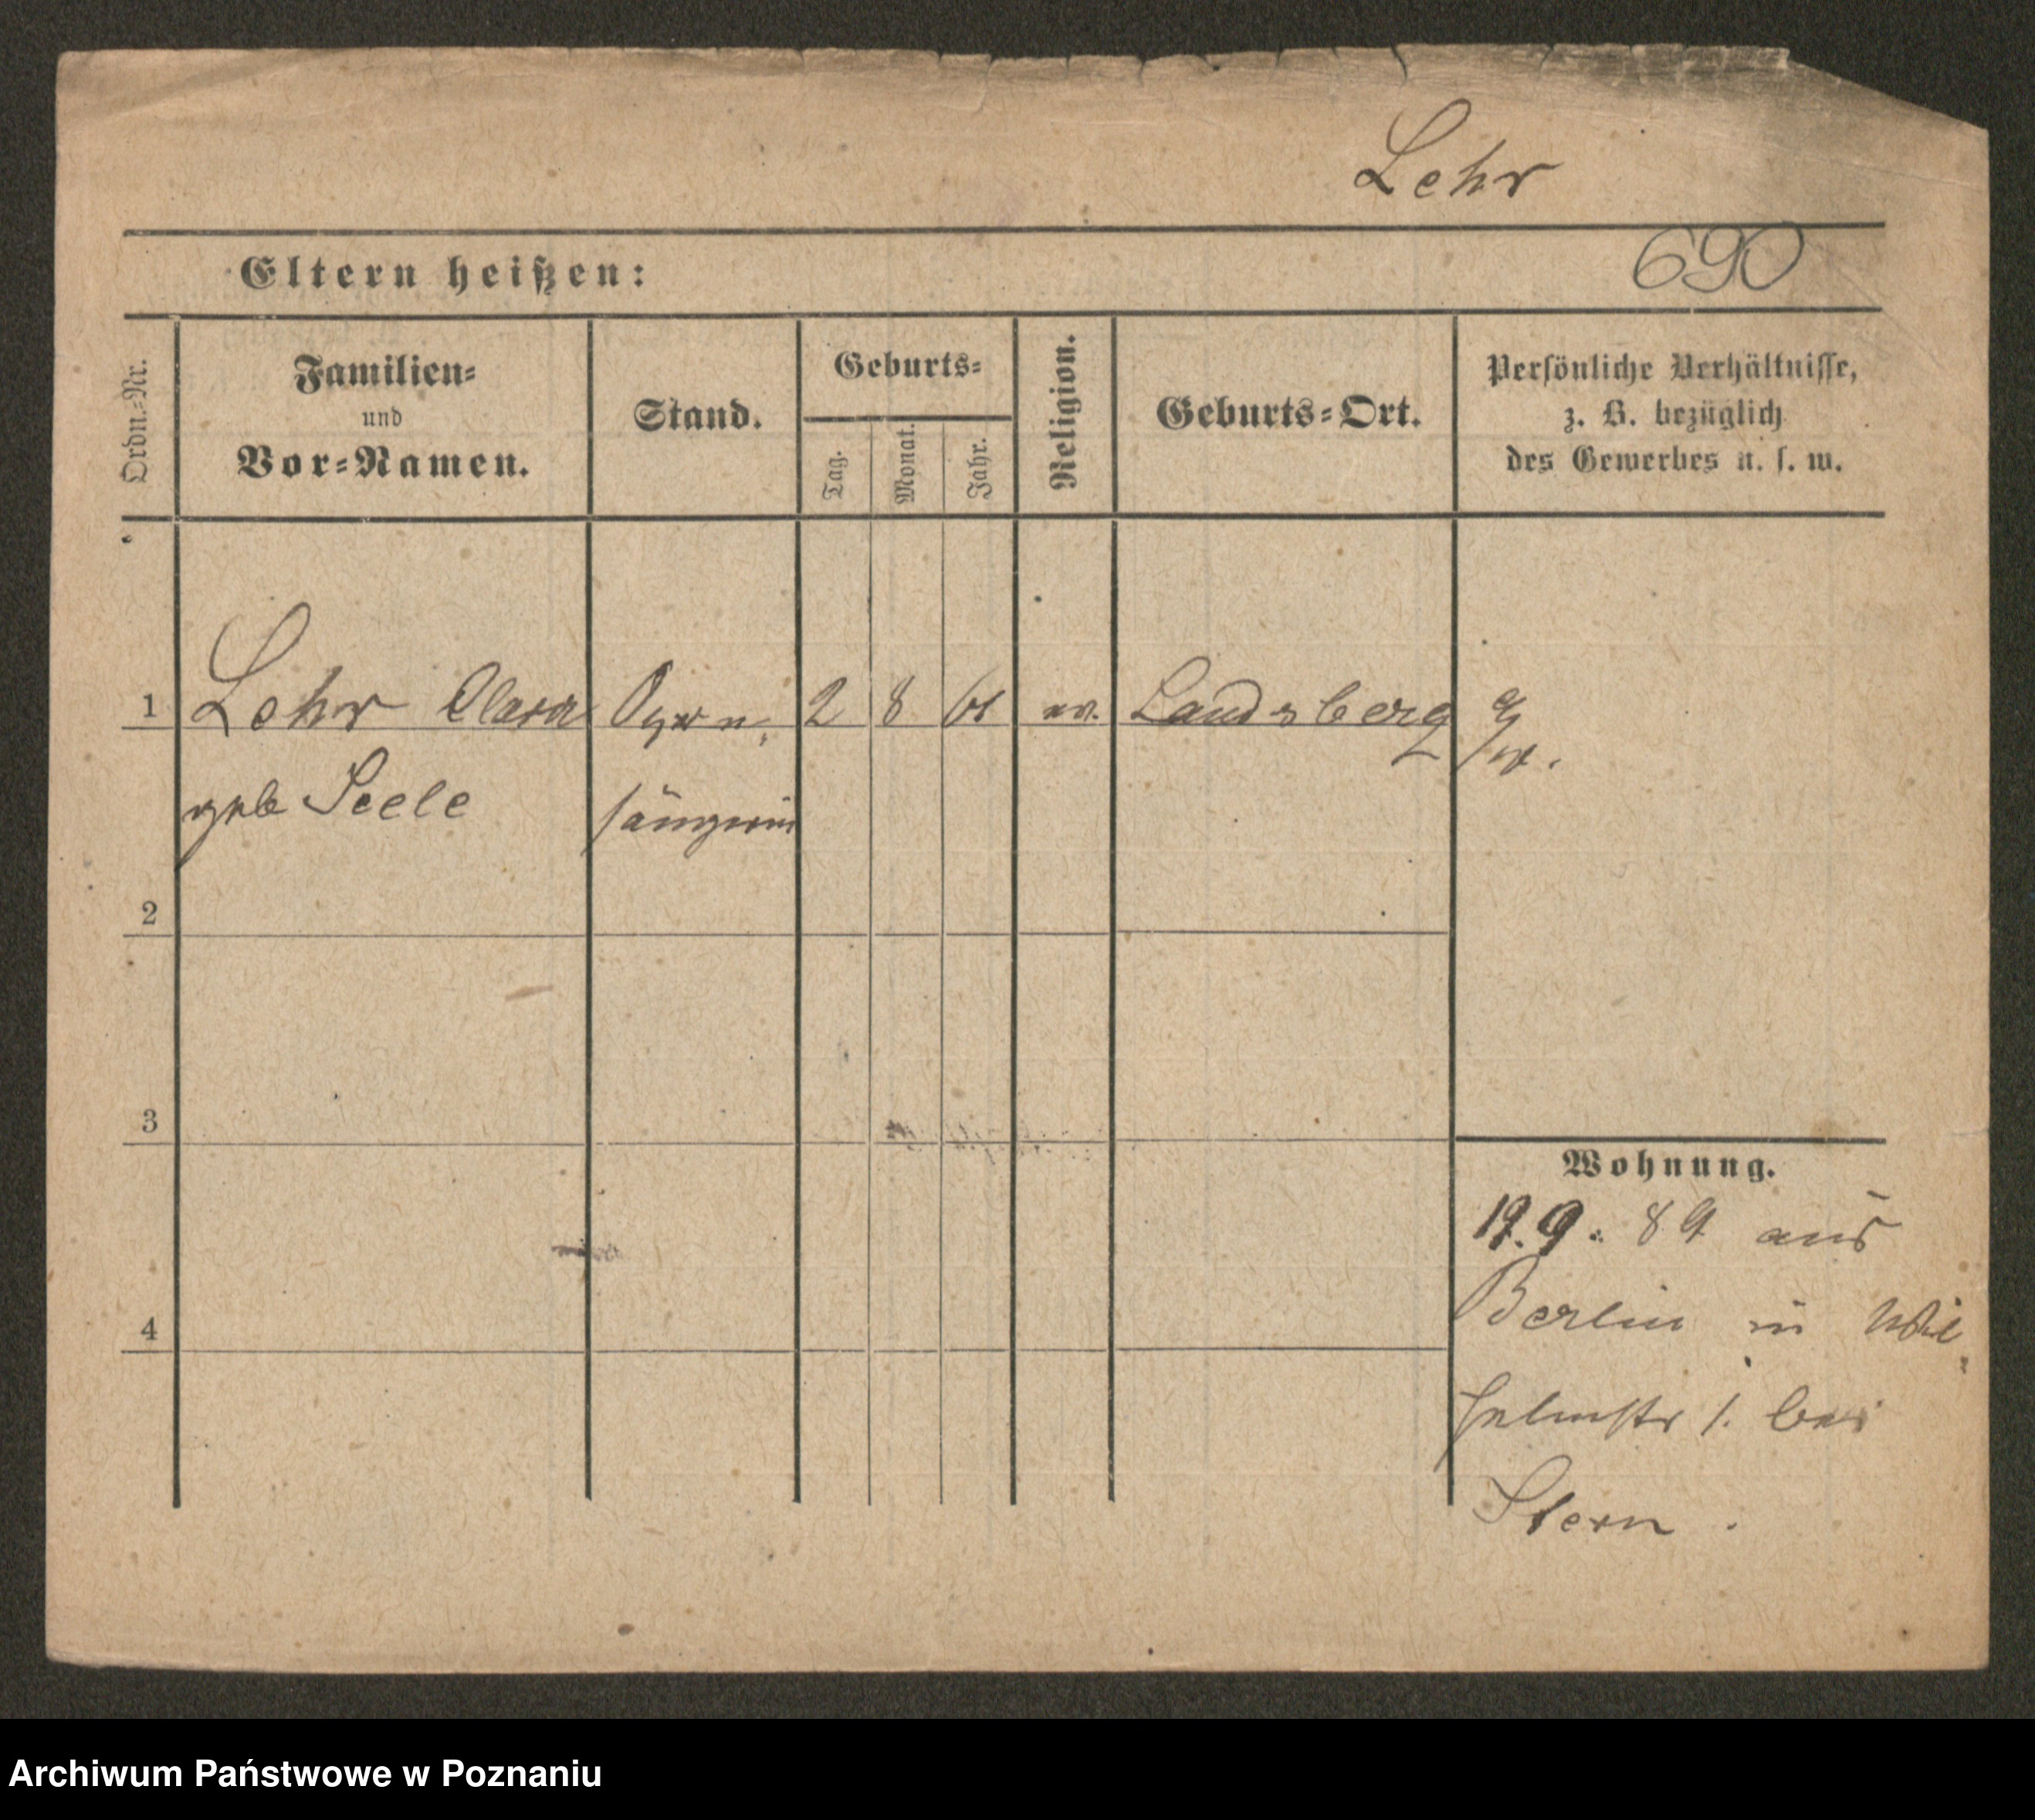 Lehr
690
Eltern heißen:
Ordn.-Nr.
Familien-
und
Vor-Namen.
Stand.
Geburts-
Tag.
Monat.
Jahr.
Religion.
Geburts-Ort.
Persönliche Verhältnisse,
z. B. bezüglich
des Gewerbes u. s. w.
1 Lehr Clara Opern- 2 8 61 ev. Landsberg a/W.
geb Seele sängerin
2
3
4
Wohnung.
9. 89 aus
Berlin in Wil-
helmstr 1. bei
Stern.
Archiwum Państwowe w Poznaniu